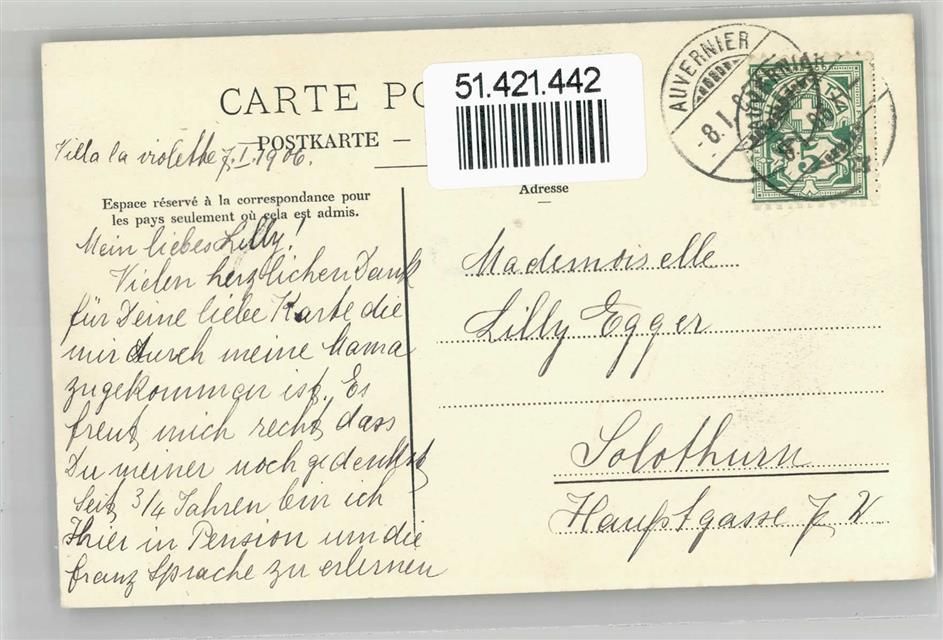 51.421.442
AUVERNIER
-8.I.
CARTE PO
POSTKARTE —
Villa la violette 7.I.1906.
Espace réservé à la correspondance pour
les pays seulement où cela est admis.
Adresse
Mein liebes Lilly!
Vielen herzlichen Dank
für Deine liebe Karte die
mir durch meine Mama
zugekommen ist. Es
freut mich recht, dass
Du meiner noch gedenkst
Seit 3/4 Jahren bin ich
Hier in Pension um die
franz Sprache zu erlernen
Mademoiselle
Lilly Egger
Solothurn
Hauptgasse